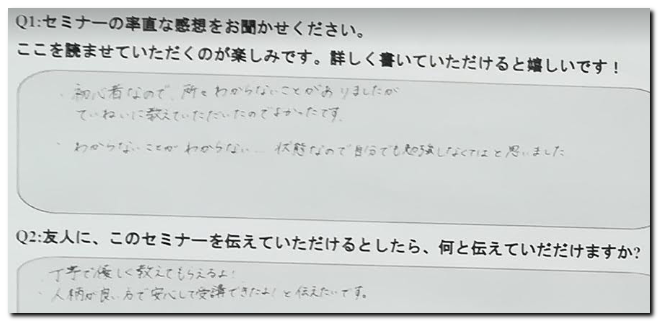 Q1:セミナーの率直な感想をお聞かせください。
ここを読ませていただくのが楽しみです。詳しく書いていただけると嬉しいです！
・初心者なので、所々わからないことがありましたが
ていねいに教えていただいたのでよかったです。
・わからないことがわからない…状態なので自分でも勉強しなくてはと思いました
Q2:友人に、このセミナーを伝えていただけるとしたら、何と伝えていだだけますか?
・丁寧で優しく教えてもらえるよ!
・人柄が良い方で安心して受講できたよ!と伝えたいです。